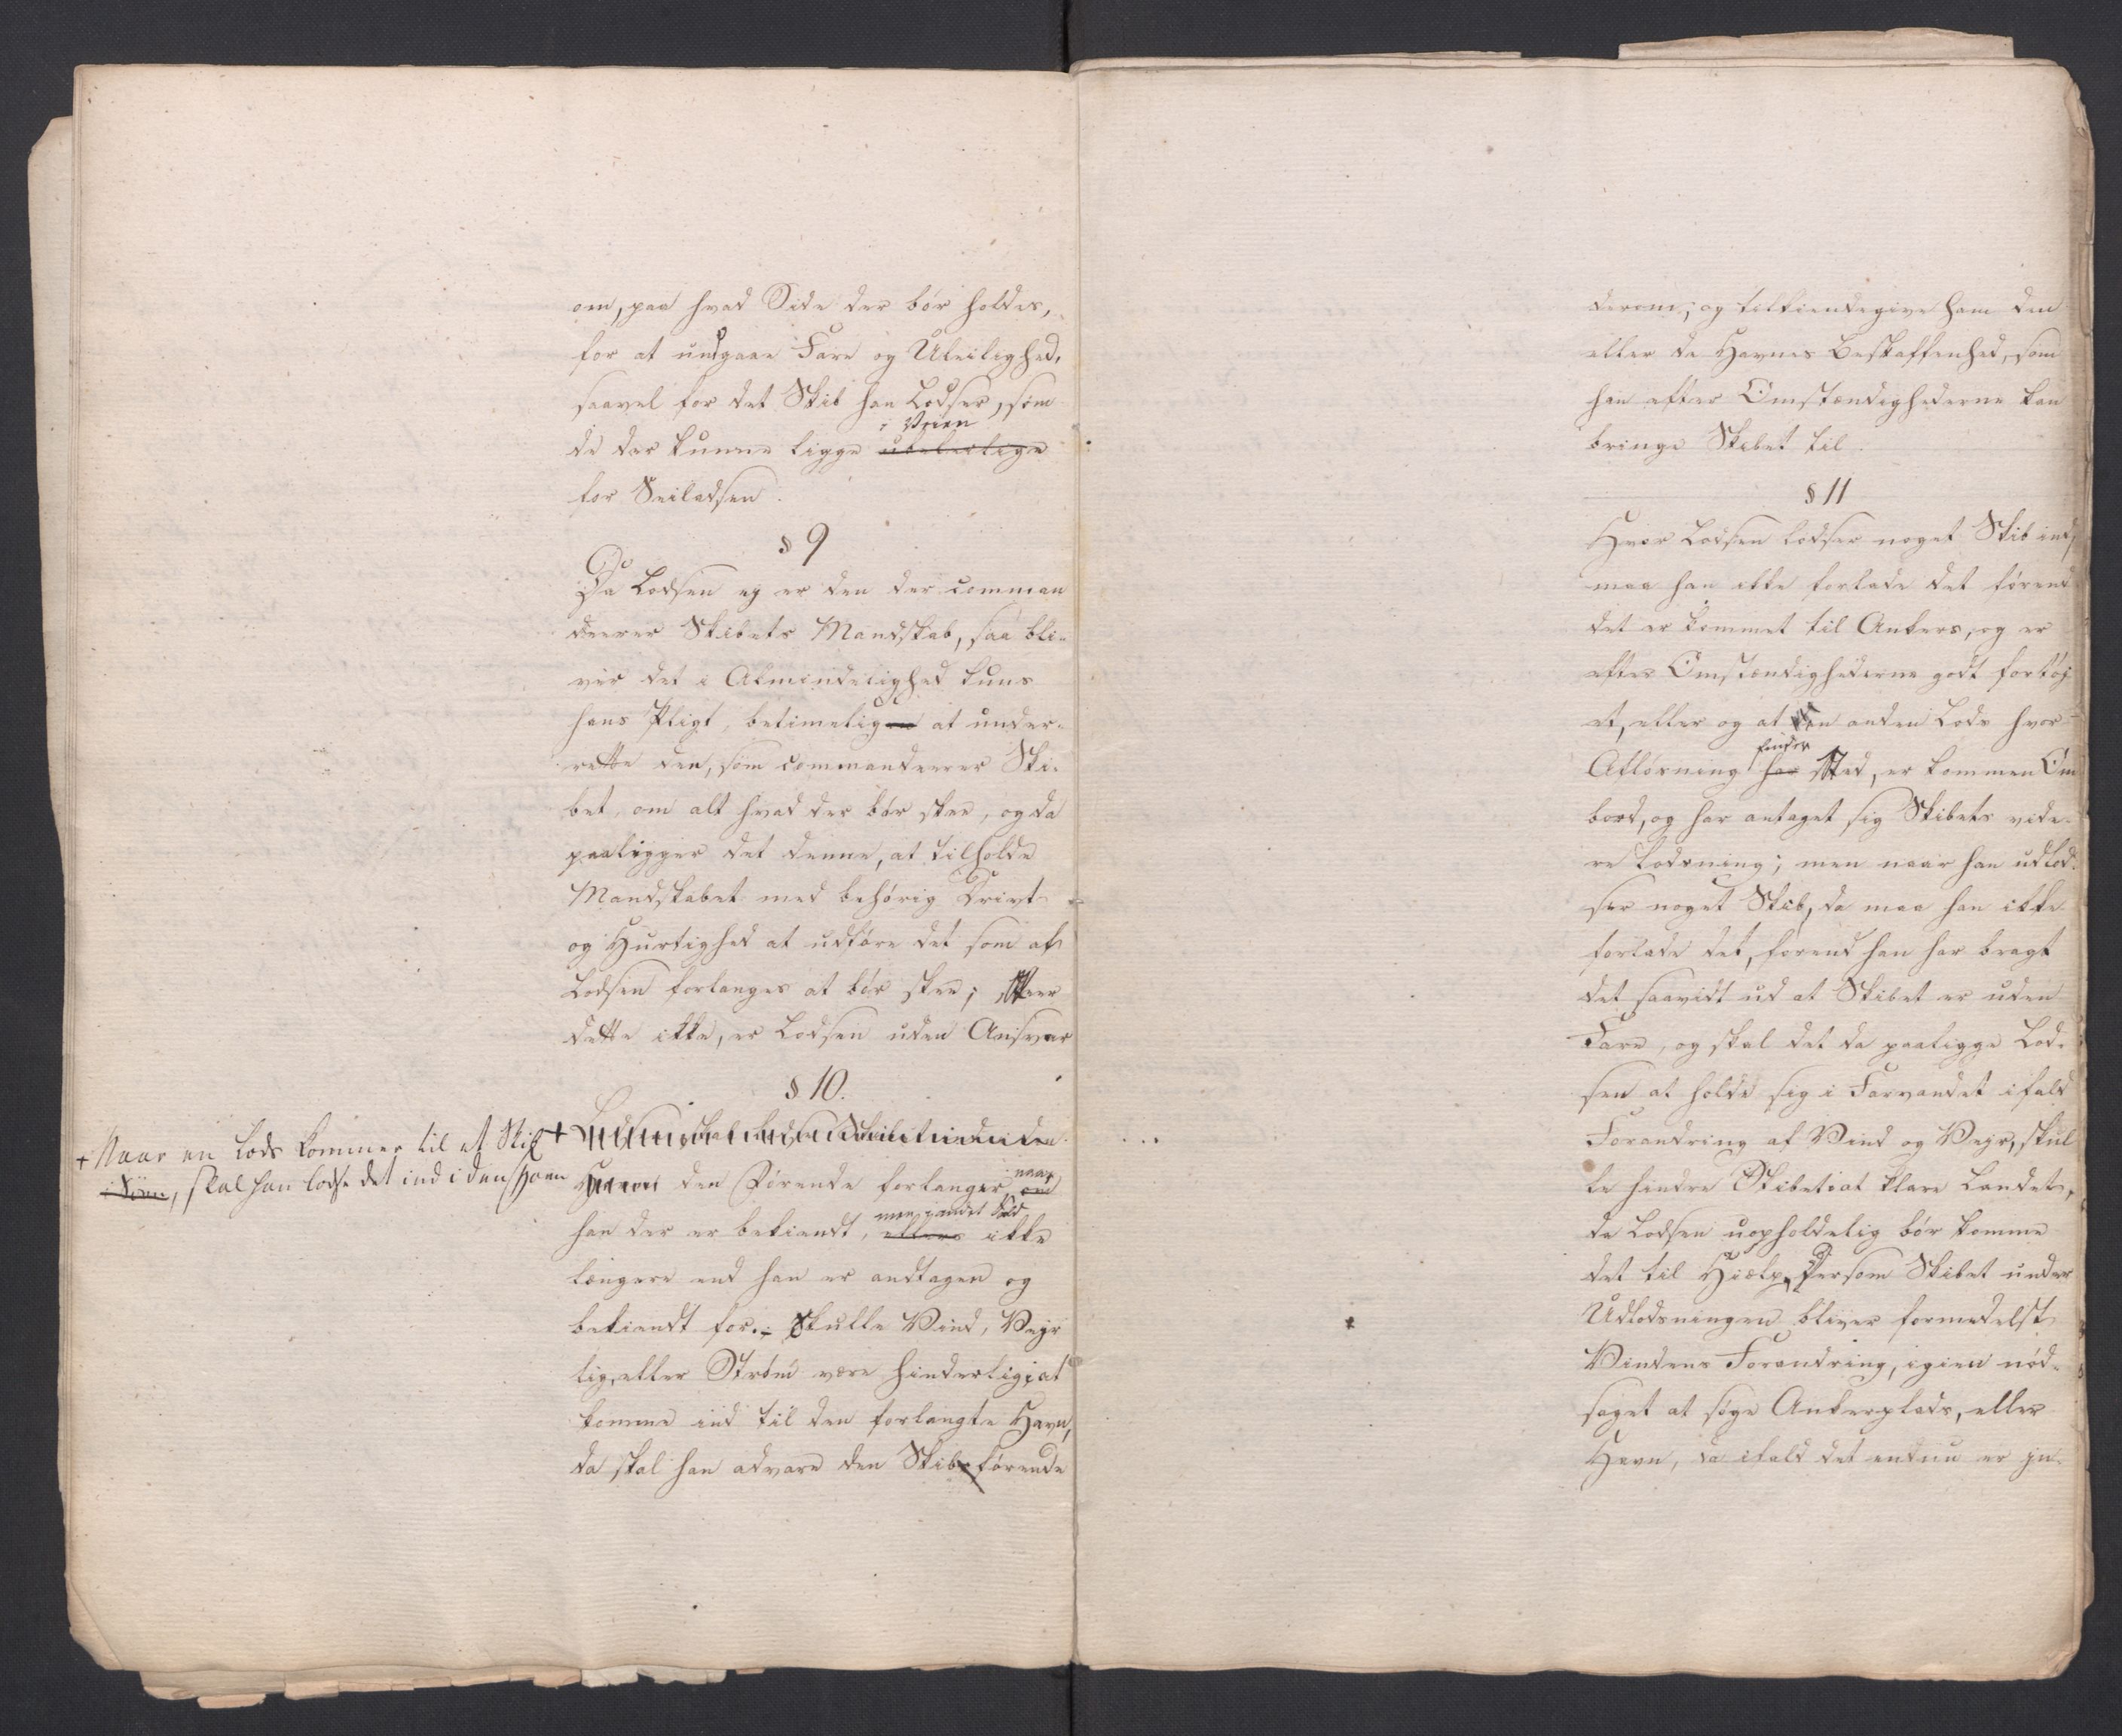 om, paa hvad Side der bør holdes,
for at undgaae Fare og Uleilighed,
saavel for det Skib han Lodser, som
i Veien
de der kunne ligge ubeleilige
for Seiladsen.
§ 9
Da Lodsen ej er den der comman
deerer Skibets Mandskab, saa bli-
ver det i Almindelighed kuns
hans Pligt, betimelig at under-
rette den, som commandeerer Ski-
bet, om alt hvad der bør skee, og da
paaligger det denne, at tilholde
Mandskabet med behørig Drivt
og Hurtighed at udføre det som af
Lodsen forlanges at bør skee; Skeer
dette ikke, er Lodsen uden Ansvar
§ 10.
+ Naar en Lods kommer til et Skib
i Søen, skal han lodse det ind i den Havn
+ Lodsen skal lodse Skibet ind i den
Havn den Førende forlanger, naar om
han der er bekiendt, men i andet Fald ellers ikke
længere end han er andtagen og
bekiendt for. Skulle Vind, Vejr
lig, eller Strøm være hinderlig, at
komme ind til den forlangte Havn,
da skal han advare den Skibsførende
derom, og tilkiendegive ham den
eller de Havnes Beskaffenhed, som
han efter Omstændighederne kan
bringe Skibet til.
§ 11
Hvor Lodsen lodser noget Skib ind,
maa han ikke forlade det førend
det er kommet til Ankers, og er
efter Omstændighederne godt fortøj
et, eller og at en anden Lods hvor
finder
Afløsning har Sted, er kommen Om
bord, og har antaget sig Skibets vide-
re Lodsning; men naar han udlod-
ser noget Skib, da maa han ikke
forlade det, førend han har bragt
det saavidt ud at Skibet er uden
Fare, og skal det da paaligge Lod-
sen at holde sig i Farvandet ifald
Forandring af Vind og Vejr, skul
le hindre Skibet at klare Landet,
da Lodsen uopholdelig bør komme
det til Hielp. Dersom Skibet under
Udlodsningen bliver formedelst
Vindens Forandring, igien nød-
saget at søge Ankerplads, eller
Havn, da ifald det endnu er in-